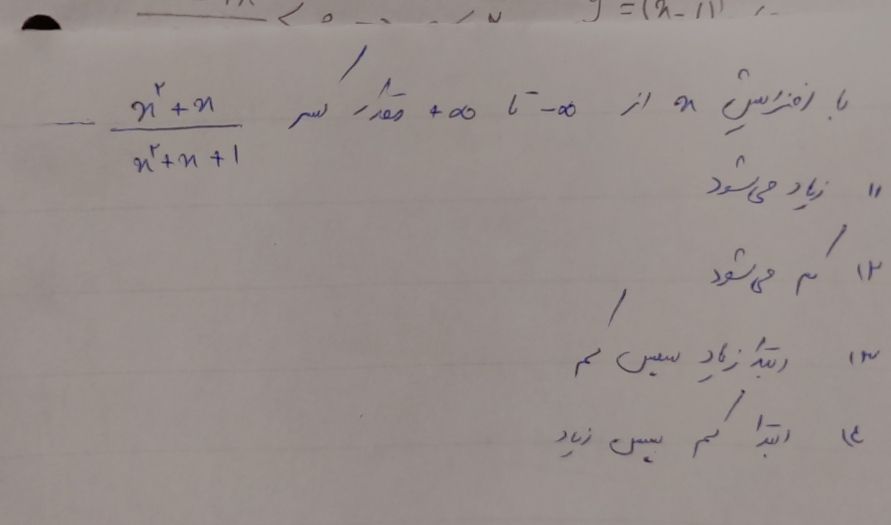 با افزایش x از -∞ تا +∞ مقدار کسر (x²+x)/(x²+x+1) ــ
۱) زیاد می‌شود
۲) کم می‌شود
۳) ابتدا زیاد سپس کم
۴) ابتدا کم سپس زیاد